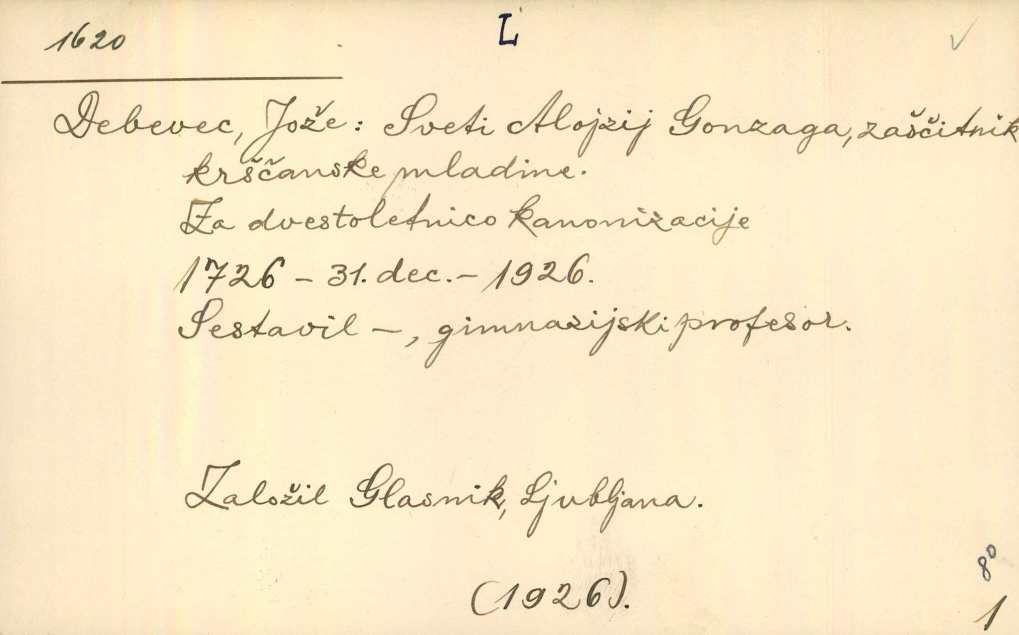 1620
L
Debevec, Jože: Sveti Alojzij Gonzaga, zaščitnik
krščanske mladine.
Za dvestoletnico kanonizacije
1726 - 31. dec. - 1926.
Sestavil -, gimnazijski profesor.
Založil Glasnik, Ljubljana.
8°
(1926).
1